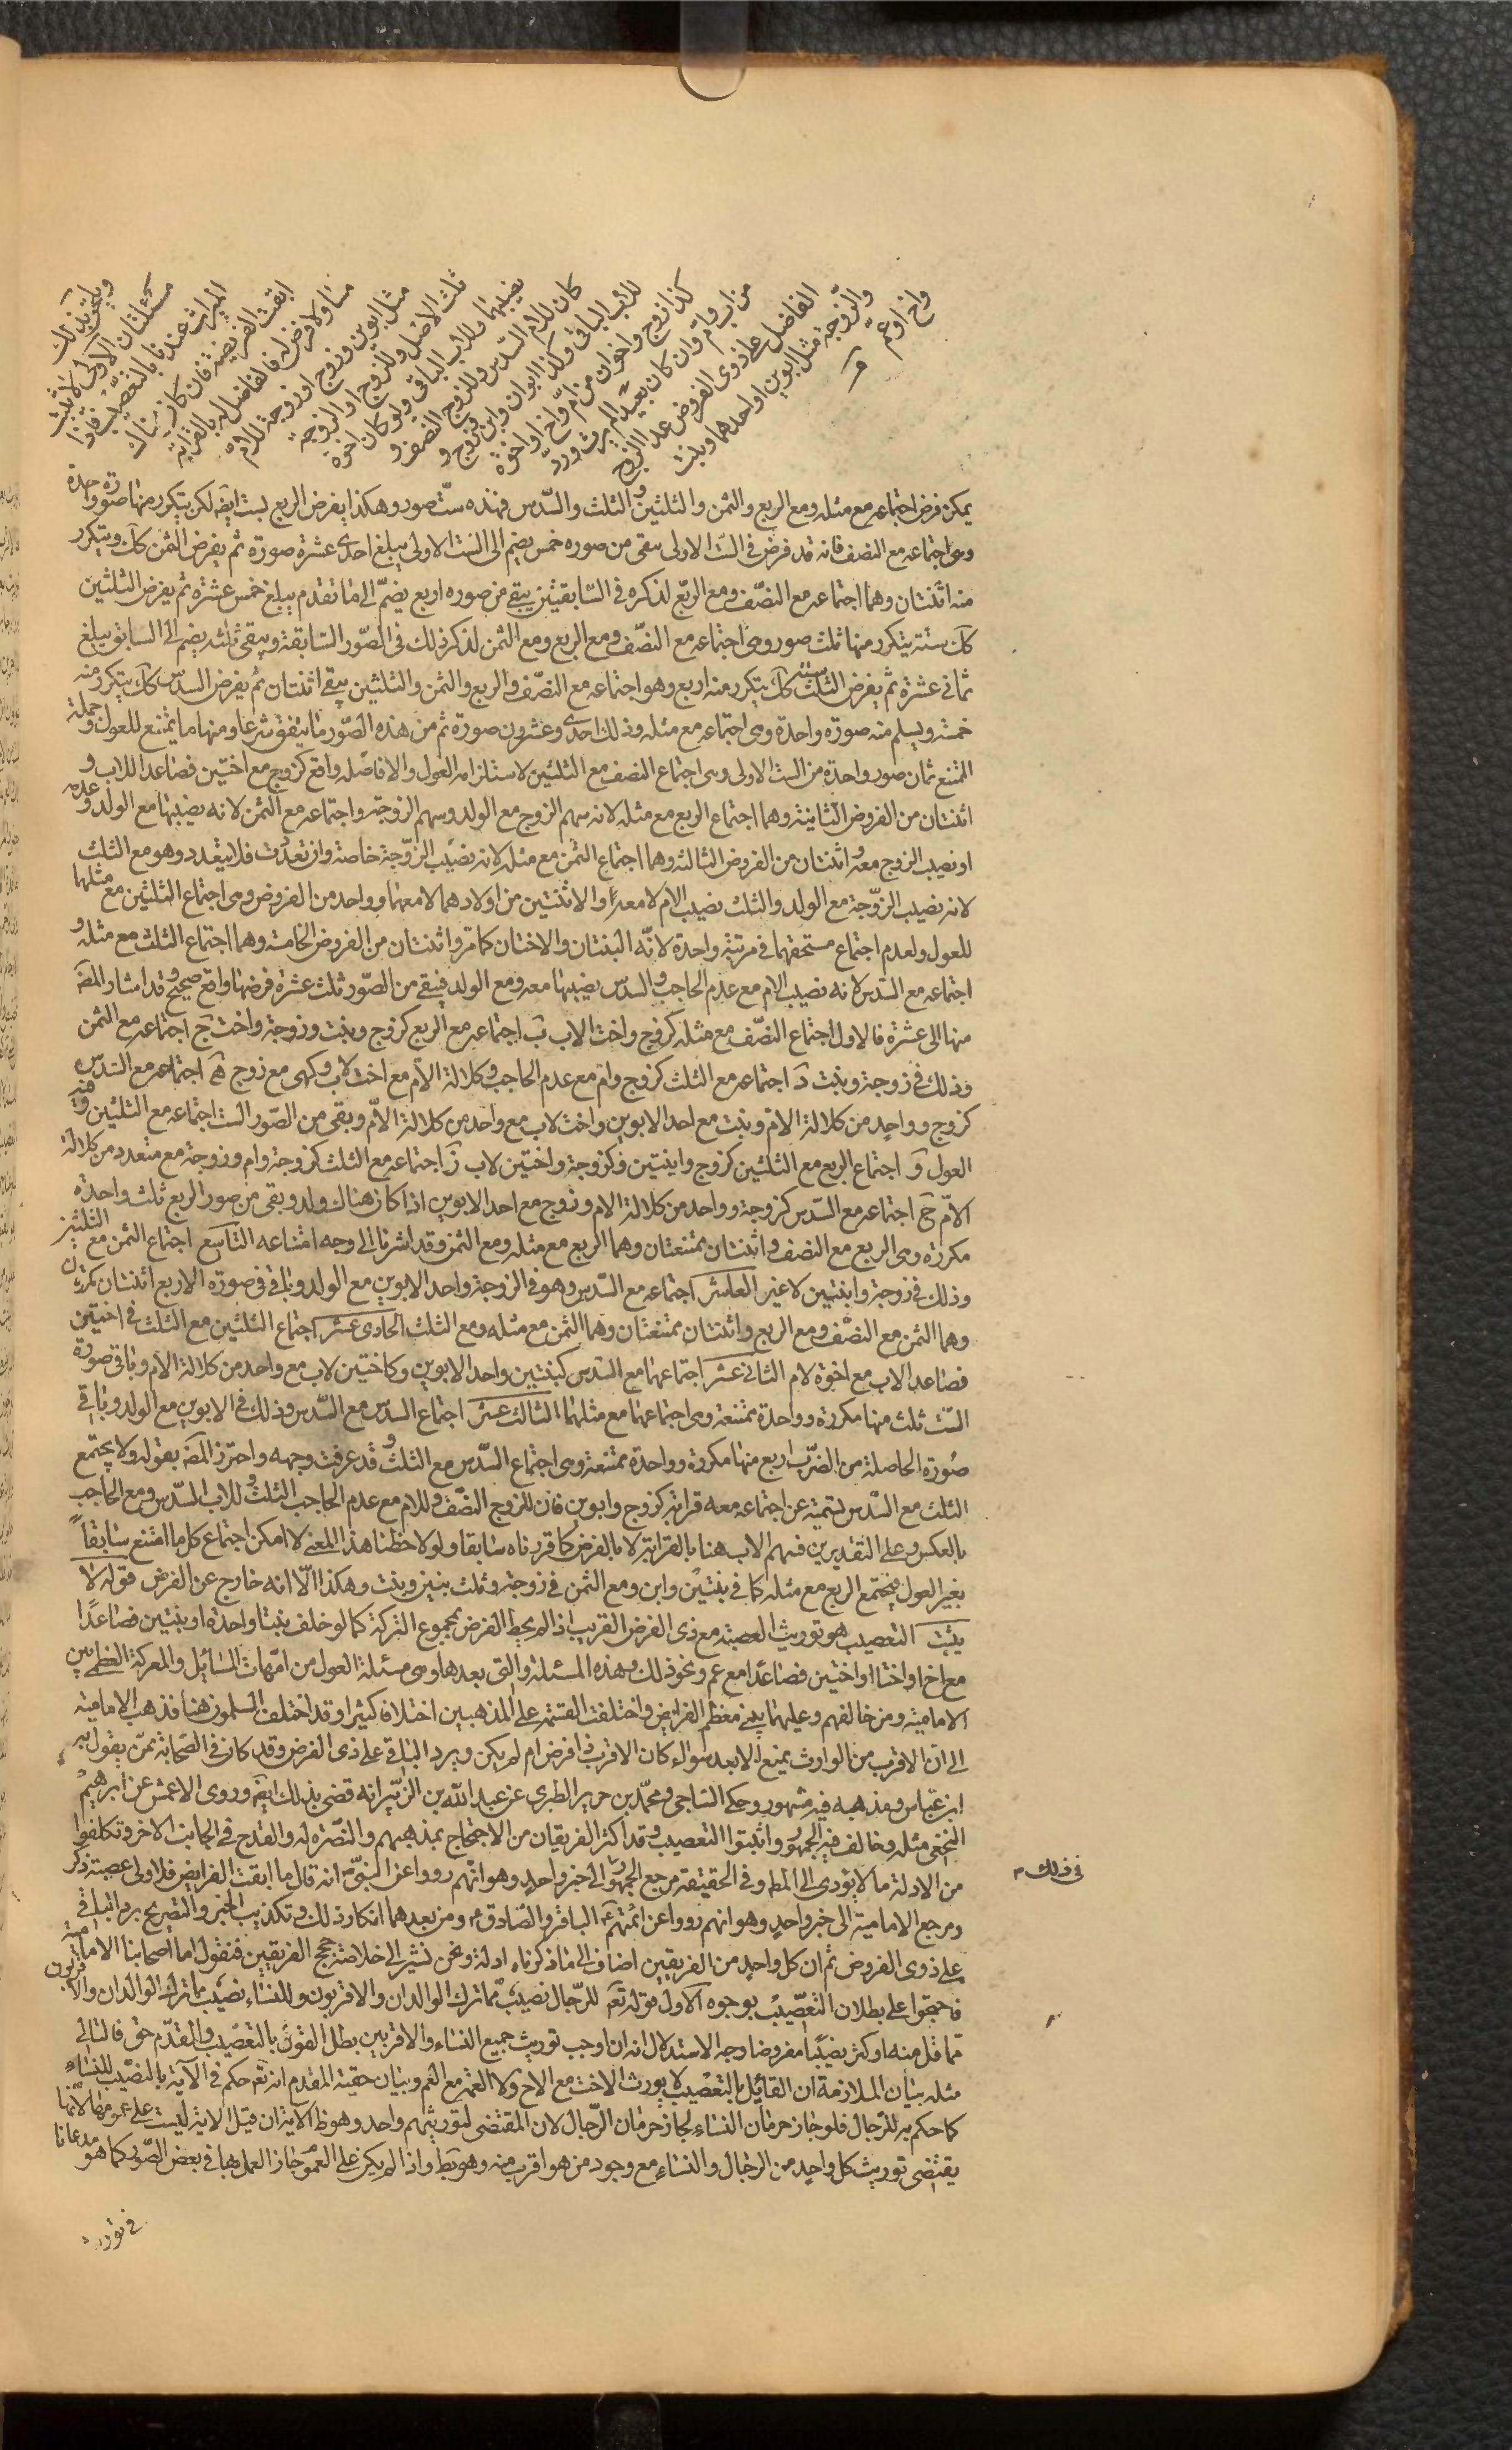 ويلحق بذلك
مسئلتان الاولى لا يثبت
الميراث عندنا بالتعصيب فاذا
ابقت الفريضة فان كان هناك
مساو لا فرض له فالفاضل له بالقرابة
مثل ابوين وزوج او زوجة للام
ثلث الاصل وللزوج او الزوجة
نصيبهما وللاب الباقى ولو كان اخوة
كان للام السدس وللزوج النصف و
للاب الباقى وكذا ابوان وابن وزوج و
كذا زوج واخوان من ام واخ او اخوة
من اب وام وان كان بعيدا لم يرث ورد
الفاضل على ذوى الفروض عدا الزوج
والزوجة مثل ابوين او احدهما وبنت
واخ او عم
يمكن فرض اجتماعه مع مثله ومع الربع والثمن والثلثين والثلث والسدس فهذه ست صور وهكذا يفرض الربع بست ايضه لكن يتكرر منها صورة واحدة
وهى اجتماعه مع النصف فانه قد فرض فى الست الاولى يبقى من صوره خمس يضم الى الست الاولى يبلغ احدى عشرة صورة ثم يفرض الثمن كك ويتكرر
منه اثنتان وهما اجتماعه مع النصف ومع الربع لذكره فى السابقتين يبقى من صوره اربع يضم الى ما تقدم يبلغ خمس عشرة ثم يفرض الثلثين
كك ستة يتكرر منها ثلث صور وهى اجتماعه مع النصف ومع الربع ومع الثمن لذكر ذلك فى الصور السابقة ويبقى ثلثة يضم الى السابق يبلغ
ثمانى عشرة ثم يفرض الثلث ستة كك يتكرر منه اربع وهو اجتماعه مع النصف والربع والثمن والثلثين يبقى اثنتان ثم يفرض السدس كك يتكرر منه
خمسة ويسلم منه صورة واحدة وهى اجتماعه مع مثله وذلك احدى وعشرون صورة ثم من هذه الصور ما يتفق شرعا ومنها ما يمتنع للعول وجملة
الممتنع ثمان صور واحدة من الست الاولى وهى اجتماع النصف مع الثلثين لاستلزامه العول والا فاصله واقع كزوج مع اختين فصاعدا للاب و
اثنتان من الفروض الثانية وهما اجتماع الربع مع مثله لانه سهم الزوج مع الولد وسهم الزوجة واجتماعه مع الثمن لانه نصيبها مع الولد وعدمه
او نصيب الزوج معه واثنتان من الفروض الثالثة وهما اجتماع الثمن مع مثله لانه نصيب الزوجة خاصة وان تعددت فلا يتعدد وهو مع الثلث
لانه نصيب الزوجة مع الولد والثلث نصيب الام لا معه او الاثنتين من اولادهما لا معهما وواحد من الفروض وهى اجتماع الثلثين مع مثلها
للعول ولعدم اجتماع مستحقهما فى مرتبة واحدة لانه البنتان والاختان كما مر واثنتان من الفروض الخامسة وهما اجتماع الثلث مع مثله و
اجتماعه مع السدس لانه نصيب الام مع عدم الحاجب والسدس نصيبها معه ومع الولد فيبقى من الصور ثلث عشرة فرضها واقع صحيح وقد اشار المصه
منها الى عشرة فالاول اجتماع النصف مع مثله كزوج واخت لاب ب اجتماعه مع الربع كزوج وبنت وزوجة واخت ج اجتماعه مع الثمن
وذلك فى زوجة وبنت د اجتماعه مع الثلث كزوج وام مع عدم الحاجب وكلالة الام مع اخت لاب وكهى مع زوج ه اجتماعه مع السدس
كزوج وواحد من كلالة الام وبنت مع احد الابوين واخت لاب مع واحد من كلالة الام وبقى من الصور الست اجتماعه مع الثلثين
العول و اجتماع الربع مع الثلثين كزوج وابنتين وكزوجة واختين لاب ز اجتماعه مع الثلث كزوجة وام وزوجة مع متعدد من كلالة
الام ح اجتماعه مع السدس كزوجة وواحد من كلالة الام وزوج مع احد الابوين اذا كان هناك ولد وبقى من صور الربع ثلث واحدة
مكررة وهى الربع مع النصف واثنتان ممتنعتان وهما الربع مع مثله ومع الثمن وقد اشرنا الى وجه امتناعه التاسع اجتماع الثمن مع الثلثين
وذلك فى زوجة وابنتين لا غير العاشر اجتماعه مع السدس وهو فى الزوجة واحد الابوين مع الولد وباقى فى صورة الاربع اثنتان مكررتان
وهما الثمن مع النصف ومع الربع واثنتان ممتنعتان وهما الثمن مع مثله ومع الثلث الحادى عشر اجتماع الثلثين مع الثلث فى اختين
فصاعدا لاب مع اخوة لام الثانى عشر اجتماعهما مع السدس كبنتين واحد الابوين وكاختين لاب مع واحد من كلالة الام وباقى صورة
الست ثلث منها مكررة وواحدة ممتنعة وهى اجتماعهما مع مثلهما الثالث عشر اجتماع السدس مع السدس وذلك فى الابوين مع الولد وباقى
صورة الحاصلة من الضرب اربع منها مكررة وواحدة ممتنعة وهى اجتماع السدس مع الثلث وقد عرفت وجهه واحترز المصه بقوله ولا يجتمع
الثلث مع السدس تسمية عن اجتماعه معه قرابة كزوج وابوين فان للزوج النصف وللام مع عدم الحاجب الثلث وللاب السدس ومع الحاجب
بالعكس وعلى التقديرين فسهم الاب هنا بالقرابة لا بالفرض كما قررناه سابقا ولو لاحظنا هذا المعنى لامكن اجتماع كل ما امتنع سابقاً
بغير العول فيجتمع الربع مع مثله كما فى بنتين وابن ومع الثمن فى زوجة وثلث بنين وبنت وهكذا الا انه خارج عن الفرض قوله لا
يثبت التعصيب هو توريث العصبة مع ذى الفرض القريب اذا لم يحط الفرض بمجموع التركة كما لو خلف بنتا واحدة او بنتين فصاعدًا
مع اخ او اختا او اختين فصاعدا مع عم ونحو ذلك وهذه المسئلة والتى بعدها وهى مسئلة العول من امهات المسائل والمعركة العظمى بين
الامامية ومن خالفهم وعليهما يبنى معظم الفرايض واختلفت القسمة على المذهبين اختلافا كثيرا وقد اختلف المسلمون هنا فذهب الامامية
الى ان الاقرب من الوارث يمنع الابعد سواء كان الاقرب ذا فرض ام لم يكن ويرد الباقى على ذى الفرض وقد كان فى الصحابة ممن يقول به
ابن عباس ومذهبه فيه مشهور وحكى الساجى ومحمد بن جرير الطبرى عن عبد الله بن الزبير انه قضى بذلك ايضه وروى الاعمش عن ابرهيم
النخعى مثله وخالف فيه الجمهور واثبتوا التعصيب وقد اكثر الفريقان من الاحتجاج بمذهبهم والنصرة له والقدح فى الجانب الاخر وتكلفوا
فى ذلك
من الادلة ما لا يؤدى الى المط وفى الحقيقة مرجع الجمهور الى خبر واحد وهو انهم رووا عن النبى انه قال ما ابقت الفرايض فلاولى عصبة ذكر
ومرجع الامامية الى خبر واحد وهو انهم رووا عن ائمتهم الباقر والصادق ومن بعدهما انكار ذلك وتكذيب الخبر والتصريح برد الباقى
على ذوى الفروض ثم ان كل واحد من الفريقين اضاف الى ما ذكرناه ادلة ونحن نشير الى خلاصة حجج الفريقين فنقول اما اصحابنا الامامية
فاحتجوا على بطلان التعصيب بوجوه الاول قوله تعه للرجال نصيب مما ترك الوالدان والاقربون وللنساء نصيب مما ترك الوالدان والاقربون
مما قل منه او كثر نصيبا مفروضا وجه الاستدلال انه ان اوجب توريث جميع النساء والاقربين بطل القول بالتعصيب والمقدم حق فالتالى
مثله بيان الملازمة ان القائل بالتعصيب لا يورث الاخت مع الاخ ولا العمة مع العم وبيان حقية المقدم انه تعه حكم فى الآية بالنصيب للنساء
كما حكم به للرجال فلو جاز حرمان النساء لجاز حرمان الرجال لان المقتضى لتوريثهم واحد وهو ظ الآية ان قيل الاية ليست على عمومها لانها
يقتضى توريث كل واحد من الرجال والنساء مع وجود من هو اقرب منه وهو بط واذا لم يكن على العموم جاز العمل بها فى بعض الصور كما هو مدعانا
فى توريث